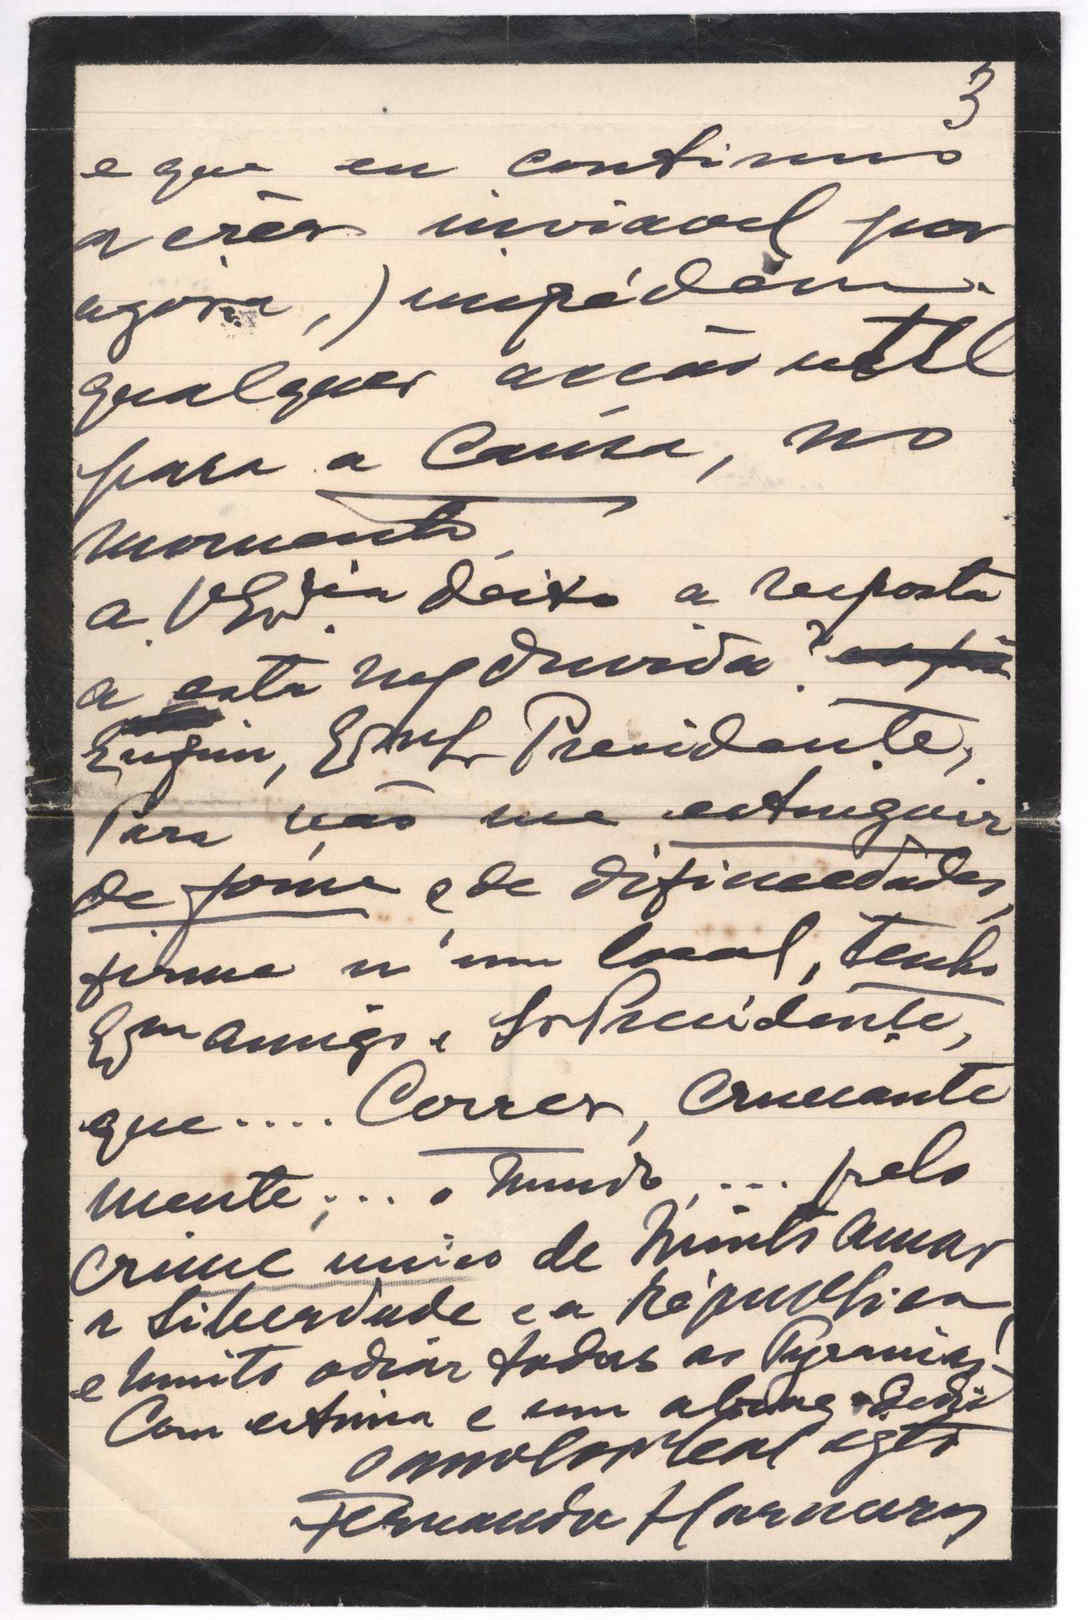 3
e que eu continuo
a crêr inviavel por
agora,) impédem
qualquer acção util
para a Causa, no
momento.
A V Exia deixo a resposta
a esta mg duvida?
Enfim, Exmo Sr Presidente,
Para não me extinguir
de fome e de dificuldades,
firme n'um local, tenho
Exmo amigo e Sr Presidente,
que.... Correr, cruciante
mente,... o mundo,... pelo
crime unico de muito amar
a Liberdade e a Républica,
e muito odiar todas as Tyranias.
Com estima e um abraço
leal
Fernando